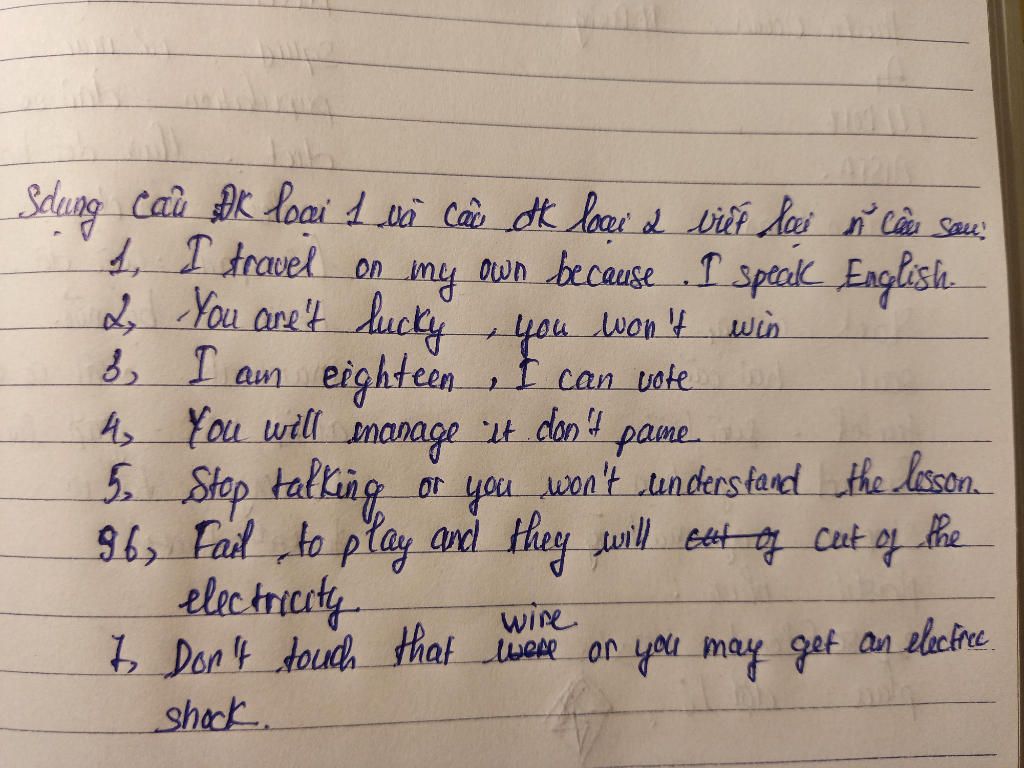 Sdụng câu ĐK loại 1 và câu đk loại 2 viết lại n~ câu sau:
1, I travel on my own because . I speak English.
2, You are't lucky , you won't win
3, I am eighteen , I can vote
4, You will manage it don't pame
5, Stop talking or you won't understand the lesson.
96, Fail , to play and they will cut of cut of the
electricity.
wire
7, Don't touch that were or you may get an electric
shock.